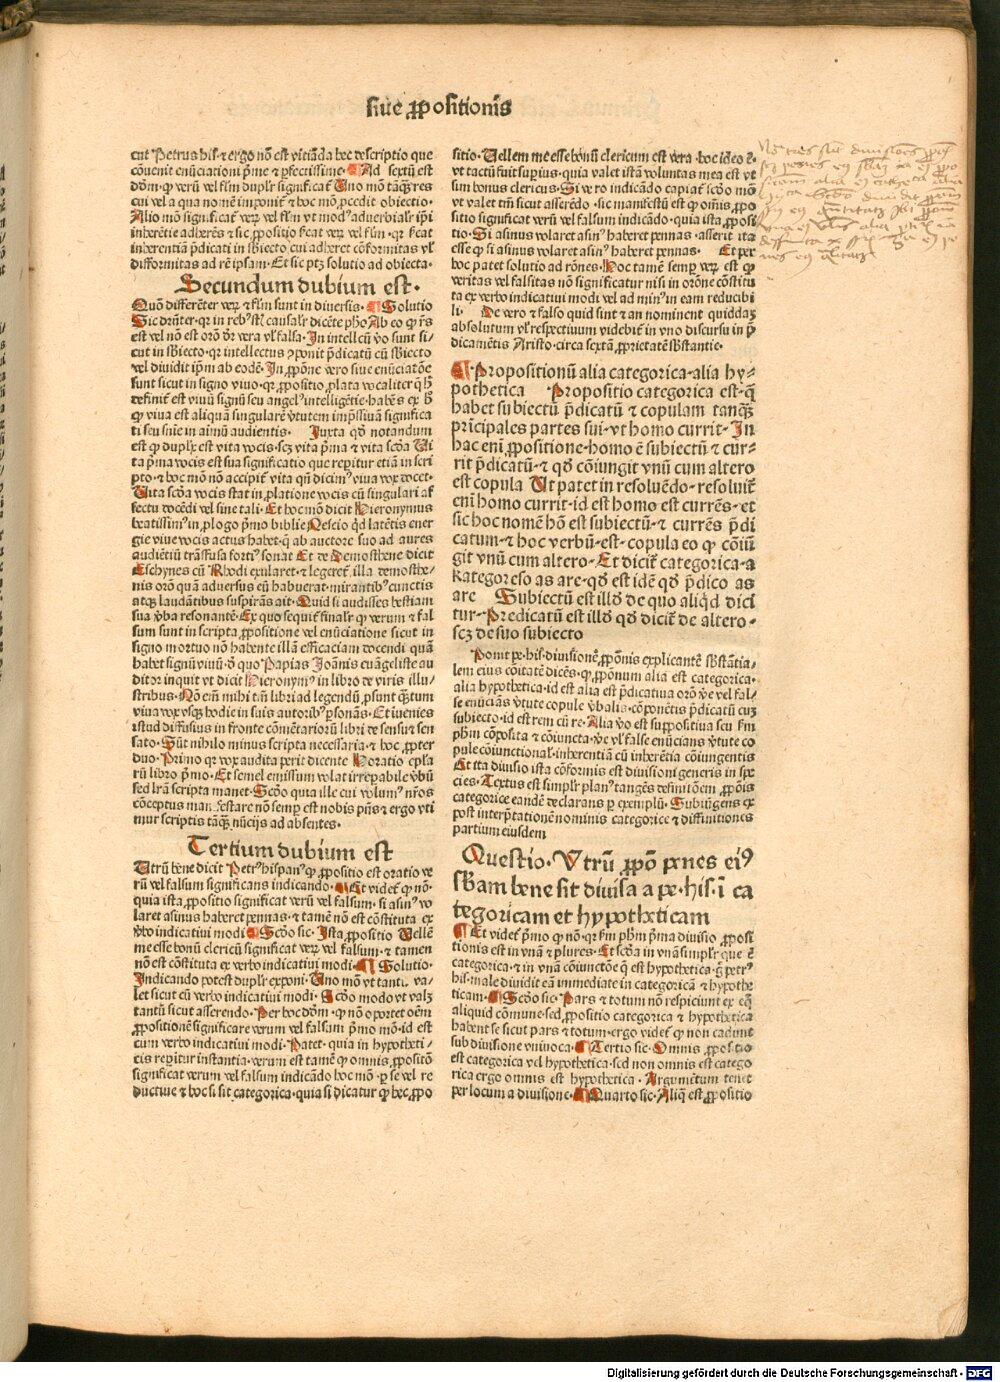 siue ꝓpositionis
cut Petrus his. ⁊ ergo nō est vitiāda hec descriptio que
cōuenit enūciationi ꝓme ⁊ ꝑfectissime. Ad sextū est
dōm. ꝙ verū vel flm duplr̄ significat᷑ Uno mō tāqꝫ res
cui vel a qua nomē imponit᷑ ⁊ hoc mō ꝓcedit obiectio.
Alio mō significat᷑ verꝫ vel flm vt modꝰ aduerbialr̄ ip̄i
inherētie adherēs ⁊ sic ꝓpositio ſcat verꝫ vel flm. qꝛ ſcat
inherentiā p̄dicati in sbiecto cui adheret cōformitas vl̓
difformitas ad rē ipsam. Et sic ptꝫ solutio ad obiecta.
Secundum dubium est.
Quō differēter verꝫ ⁊ flm sunt in diuersis. Solutio
Sic dr̄nter. qꝛ in rebꝰ stl̓ causalr̄ dicēte pho Ab eo ꝙ rēs
est vel nō est orō dr̄ vera vl̓ falsa. In intellcū v̓o sunt si-
cut in sbiecto. qꝛ intellectus ꝯponit p̄dicatū cū sbiecto
vel diuidit ip̄m ab eodē. In ꝓpōne vero siue enūciatōe
sunt sicut in signo viuo. qꝛ ꝓpositio ꝓlata vocaliter
definit᷑ est viuū signū seu angelꝰ intelligētie. habēs ex h̓
ꝙ viua est aliquā singularē v̓tutem imp̄ssiuā significa
ti seu suie in aimū audientis. Juxta qd̓ notandum
est ꝙ duplex est vita vocis. scꝫ vita p̄ma ⁊ vita scd̓a Ui
ta p̄ma vocis est sua significatio que repitur etiā in scri
pto. ⁊ hoc mō nō accipit᷑ vita qn̄ dicimꝰ viua vox docet.
Uita scd̓a vocis stat in ꝓlatione vocis cū singulari af
fectu docēdi vel sine tali. Et hoc mō dicit Hieronymus
beatissimꝰ in ꝓlogo p̄mo biblie Nescio qd̓ latētis ener
gie viue vocis actus habet. ⁊ ab auctore suo ad aures
audiētiū trāsfusa fortiꝰ sonat Et de Demosthene dicit
Eschynes cū Rhodi exularet. ⁊ legeret᷑ illa demosthe-
nis orō quā aduersus eū habuerat. mirantibꝰ cunctis
atqꝫ laudātibus suspirās ait. Quid si audisses bestiam
sua v̓ba resonantē. Ex quo sequit᷑ finalr̄ ꝙ verum ⁊ fal
sum sunt in scripta ꝓpositione vel enūciatione sicut in
signo mortuo nō habente illā efficaciam docendi quā
habet signū viuū. d̓ quo Papias Joānis euāgeliste au
ditor inquit vt dicit Hieronymꝰ in libro de viris illu-
stribus. Nō em̄ mihi tm̄ libri ad legendū ꝓsunt qꝫtum
viua vox vsqꝫ hodie in suis autoribꝰ ꝑsonās. Et iuenies
istud diffusius in fronte cōmētariorū libri de sensu ⁊ sen
sato. Sūt nihilo minus scripta necessaria. ⁊ hoc ꝓpter
duo. Primo qꝛ vox audita perit dicente Horatio epl̓a
rū libro p̄mo. Et semel emissum volat irreuocabile v̓bū
sed lr̄a scripta manet. Scd̓o quia ille cui volumꝰ nr̄os
cōceptus manifestare nō semꝑ est nobis pn̄s ⁊ ergo vti
mur scriptis tāqꝫ nūcijs ad absentes.
Tertium dubium est
Utrū bene dicit Petrꝰ hispanꝰ ꝙ ꝓpositio est oratio ve
rū vel falsum significans indicando. Et videt᷑ ꝙ nō.
quia ista ꝓpositio significat verū vel falsum. si asinꝰ vo
laret asinus haberet pennas. ⁊ tamē nō est cōstituta ex
v̓bo indicatiui modi Scd̓o sic. Ista ꝓpositio Uellē
me esse bonū clericū significat verꝫ vel falsum. ⁊ tamen
nō est cōstituta ex verbo indicatiui modi. Solutio.
Indicando potest duplr̄ exponi. Uno mō vt tantū va-
let sicut cū verbo indicatiui modi. Scd̓o modo vt valꝫ
tantū sicut asserendo. Per hoc dōm. ꝙ nō oportet oēm
ꝓpositionē significare verum vel falsum p̄mo mō. id est
cum verbo indicatiui modi. Patet. quia in hypotheti-
cis repitur instantia. verum est tamē ꝙ omnis ꝓpositō
significat verum vel falsum indicādo hoc mō. ꝑ se vel re
ductiue ⁊ hoc si sit categorica. quia si dicatur ꝙ hec ꝓpo
sitio. Uellem me esse bonū clericum est vera. hoc ideo ē.
vt tactū fuit supius. quia valet ista voluntas mea est vt
sim bonus clericus. Si v̓ero indicādo capiat᷑ scd̓o mō
vt valet tm̄ sicut asserēdo. sic manifestū est ꝙ oīs ꝓpo
sitio significat verū vel falsum indicādo. quia ista ꝓposi
tio. Si asinus volaret asinꝰ haberet pennas. asserit ita
esse ꝙ si asinus volaret asinꝰ haberet pennas. Et per
hoc patet solutio ad rōnes. Hoc tamē semꝑ verꝫ est ꝙ
veritas vel falsitas nō significatur nisi in orōne cōstitu
ta ex verbo indicatiui modi vel ad minꝰ in eam reducibi
li. De vero ⁊ falso quid sint ⁊ an nominent quiddaꝫ
absolutum vl̓ respectiuum videbit᷑ in vno discursu in p̄
dicamētis Aristo. circa sextā ꝓprietatē sbstantie.
Propositionū alia categorica. alia hy-
pothetica Propositio categorica est. q̄
habet subiectū p̄dicatū ⁊ copulam tanqꝫ
prīcipales partes sui. vt homo currit. In
hac eni ꝓpositione. homo ē subiectū ⁊ cur-
rit p̄dicatū. ⁊ qd̓ cōiungit vnū cum altero
est copula Ut patet in resoluēdo. resoluit᷑
eni homo currit. id est homo est currēs. et
sic hoc nomē hō est subiectū. ⁊ currēs p̄di
catum. ⁊ hoc verbū est. copula eo ꝙ cōiū
git vnū cum altero. Et dicit᷑ categorica. a
Kategoreso as are. qd̓ est idē qd̓ p̄dico as
are Subiectū est illd̓ de quo aliqd̓ dici
tur. Predicatū est illd̓ qd̓ dicit᷑ de altero.
scꝫ de suo subiecto
Ponit pe. his. diuisionē ꝓpōnis explicantē sbstantia-
lem eius cōitatē dicēs. ꝙ ꝓpōnum alia est categorica.
alia hypothetica. id est alia est p̄dicatiua orō v̓e vel fal-
se enūciās v̓tute copule v̓balis. cōponētis p̄dicatū cuꝫ
subiecto. id est rem cū re. Alia v̓o est suppositiua seu fm̄
phm̄ cōposita ⁊ cōiuncta. v̓e vl̓ false enūcians v̓tute co
pule cōiunctional̓. inherentiā cū inherētia cōiungentis
Et ita diuisio ista cōformis est diuisioni generis in spe
cies. Textus est simplr̄ planꝰ tangēs definitōem ꝓpōis
categorice eandē declarans ꝑ exemplū. Subiūgens ex
post interp̄tationē nominis categorice ⁊ diffinitiones
partium eiusdem
Questio. Utrū ꝓpō penes eiꝰ
sbam bene sit diuisa a pe. his. ī ca
tegoricam et hypotheticam
Et videt᷑ p̄mo ꝙ nō. qꝛ fm̄ phm̄ p̄ma diuisio ꝓposi
tionis est in vnā ⁊ plures. Et scd̓a in vnā simplr̄ que ē
categorica. ⁊ in vnā cōiunctōe q̄ est hypothetica. ḡ petrꝰ
his. male diuidit eā immediate in categoricā ⁊ hypothe
ticam. Scd̓o sic. Pars ⁊ totum nō respiciunt ex eq̄
aliquid cōmune. sed ꝓpositio categorica ⁊ hypothetica
habent se sicut pars ⁊ totum. ergo videt᷑ ꝙ non cadunt
sub diuisione vniuoca. Tertio sic. Omnis ꝓpositio
est categorica vel hypothetica. sed non omnis est catego
rica ergo omnis est hypothetica. Argumētum tenet
per locum a diuisione. Quarto sic. Aliq̄ est ꝓpositio
Digitalisierung gefördert durch die Deutsche Forschungsgemeinschaft - DFG